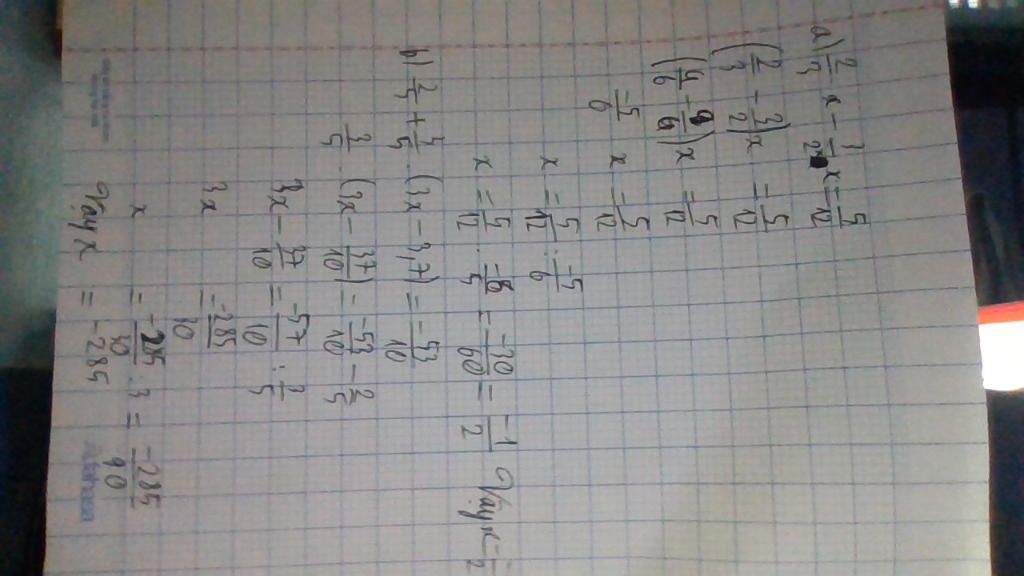 a) 2/3 x - 3/2 x = 5/12
(2/3 - 3/2) x = 5/12
(4/6 - 9/6) x = 5/12
-5/6 x = 5/12
x = 5/12 : -5/6
x = 5/12 . -6/5 = -30/60 = -1/2 Vậy x = -1/2
b) 2/5 + 3/5 . (3x - 3,7) = -53/10
3/5 . (3x - 37/10) = -53/10 - 2/5
3x - 37/10 = -57/10 : 3/5
3x = -285/30
x = -285/30 : 3 = -285/90
Vậy x = -285